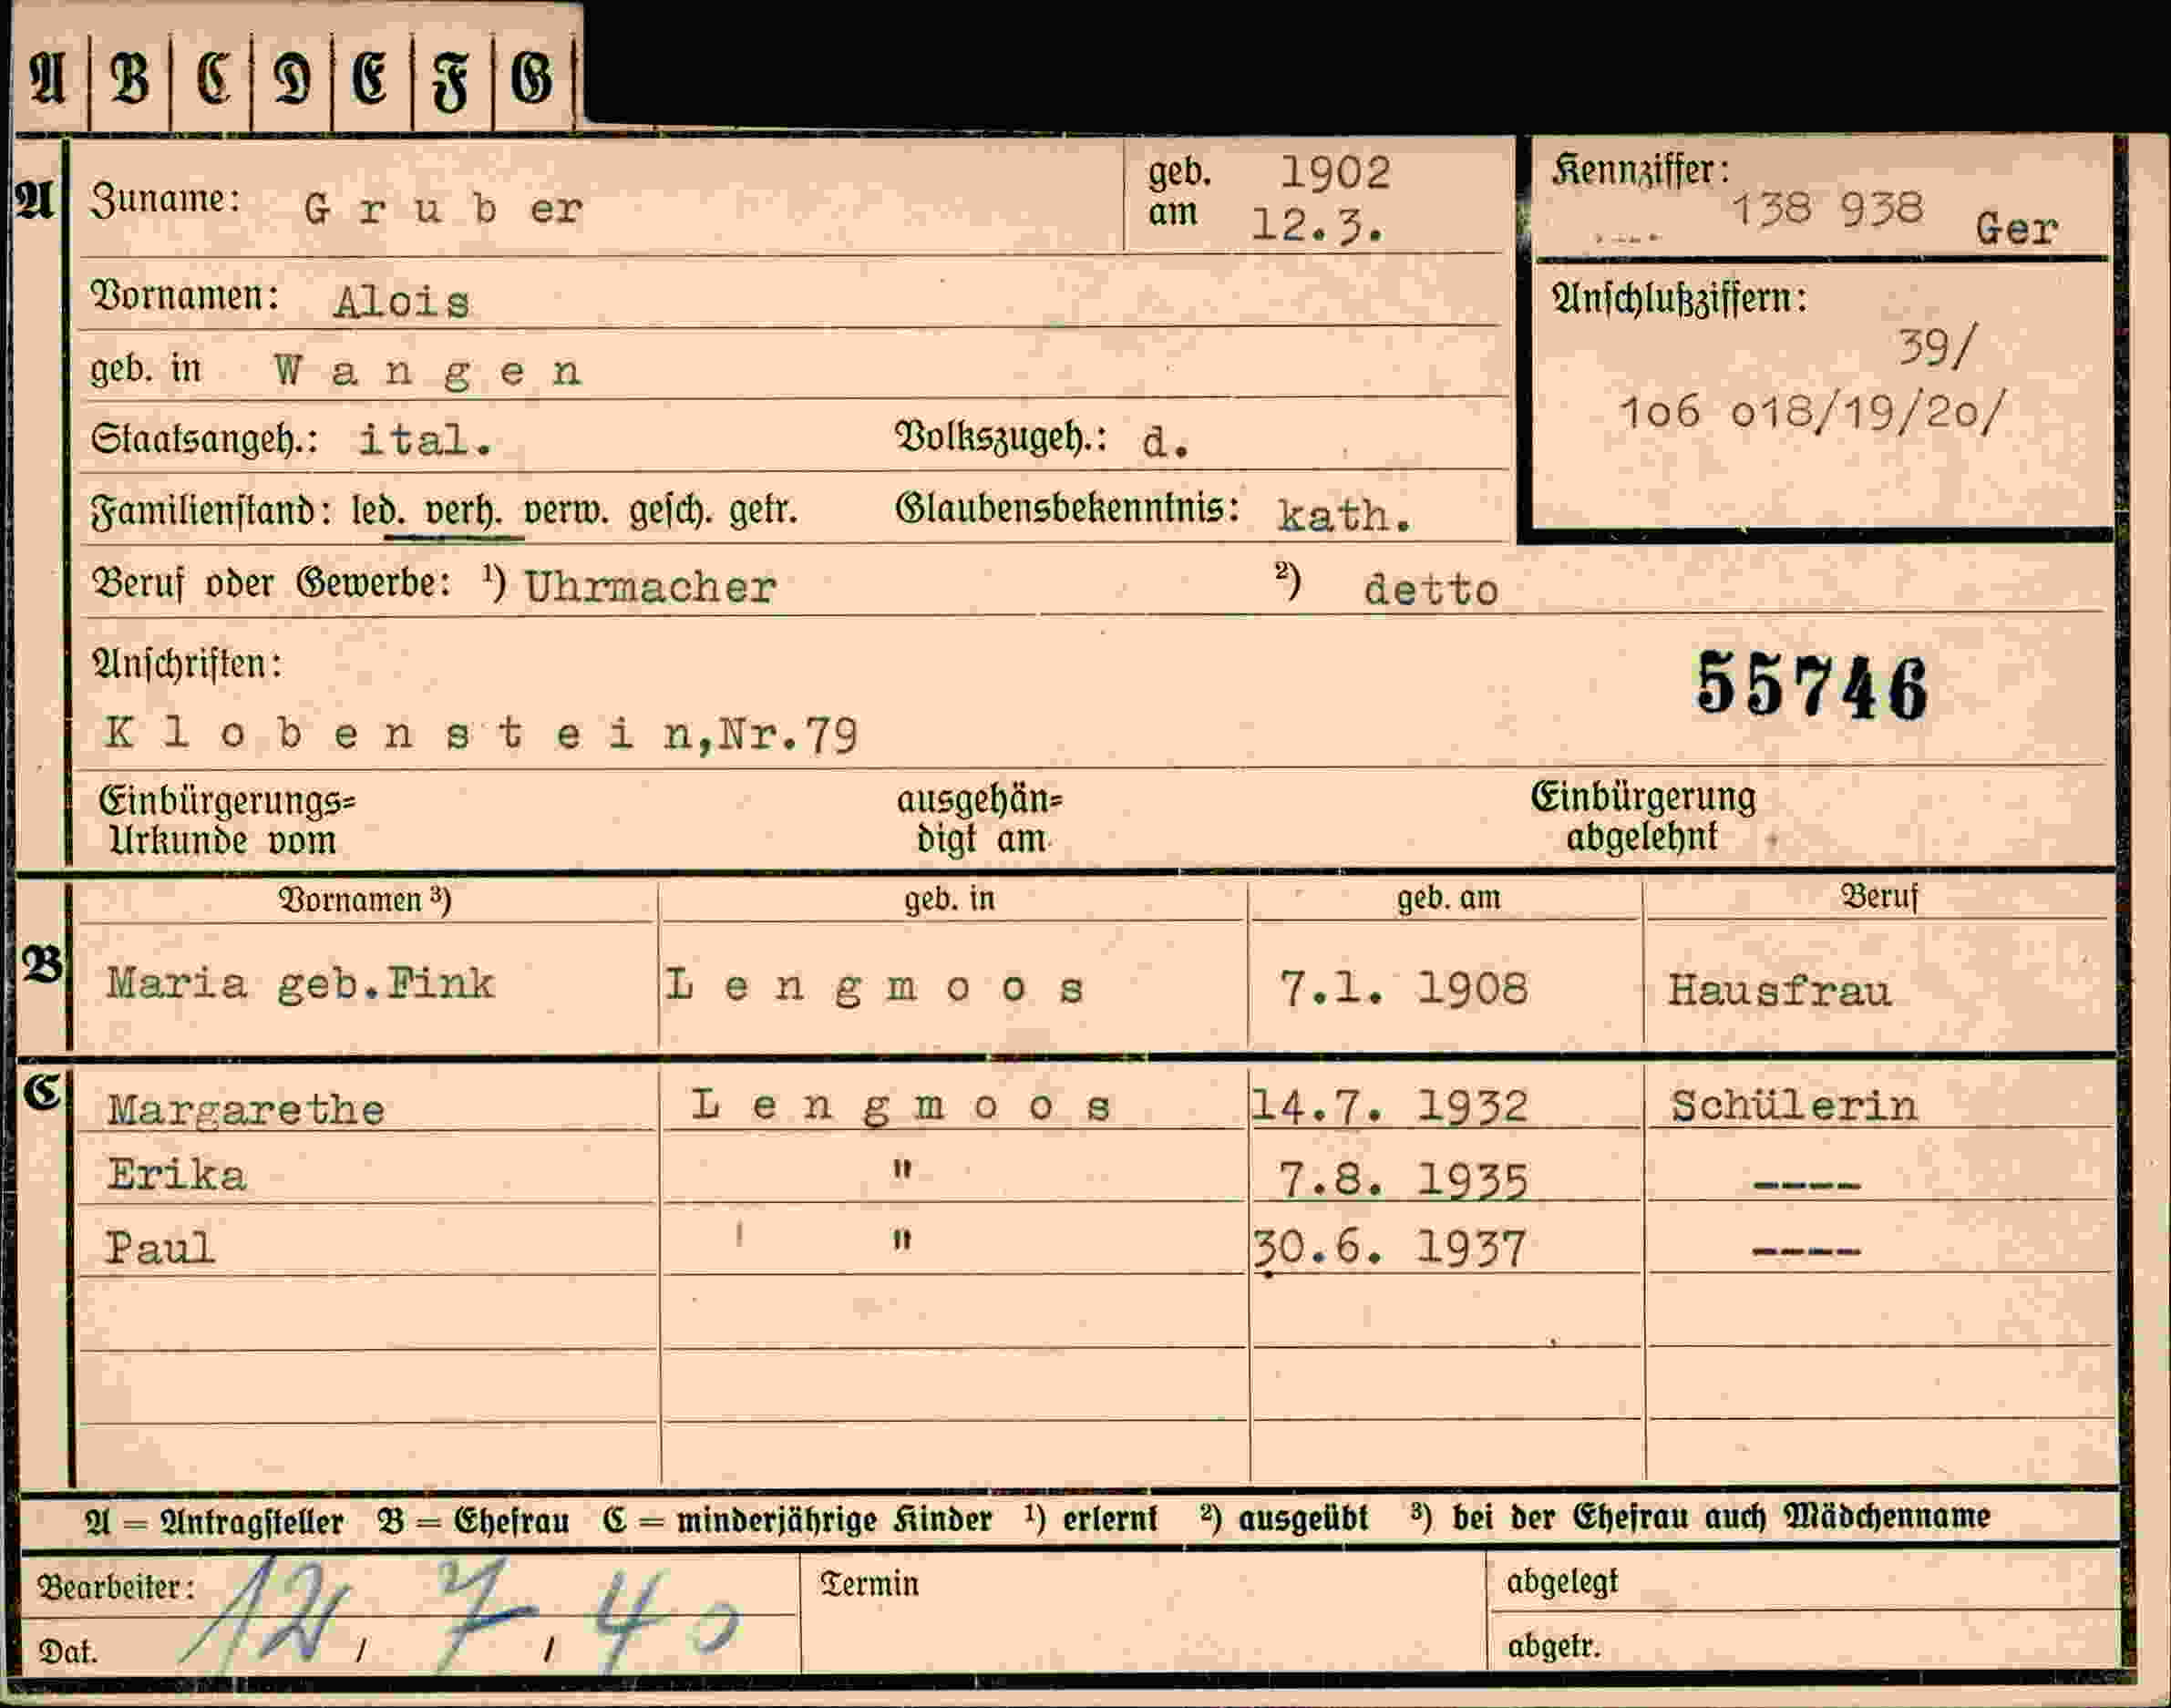 A B C D E F G
A Zuname: G r u b er geb. am 1902 12.3. Kennziffer: 138 938 Ger
Vornamen: Alois Anschlußziffern:
39/
geb. in W a n g e n 1o6 o18/19/2o/
Staatsangeh.: ital. Volkszugeh.: d.
Familienstand: led. verh. verw. gesch. getr. Glaubensbekenntnis: kath.
Beruf oder Gewerbe: ¹) Uhrmacher ²) detto
Anschriften: 55746
K l o b e n s t e i n,Nr.79
Einbürgerungs= ausgehän= Einbürgerung
Urkunde vom digt am abgelehnt
Vornamen ³) geb. in geb. am Beruf
B Maria geb.Fink L e n g m o o s 7.1. 1908 Hausfrau
C Margarethe L e n g m o o s 14.7. 1932 Schülerin
Erika " 7.8. 1935 ----
Paul " 30.6. 1937 ----
A = Antragsteller B = Ehefrau C = minderjährige Kinder ¹) erlernt ²) ausgeübt ³) bei der Ehefrau auch Mädchenname
Bearbeiter: Termin abgelegt
Dat. 12 / 7 / 40 abgetr.